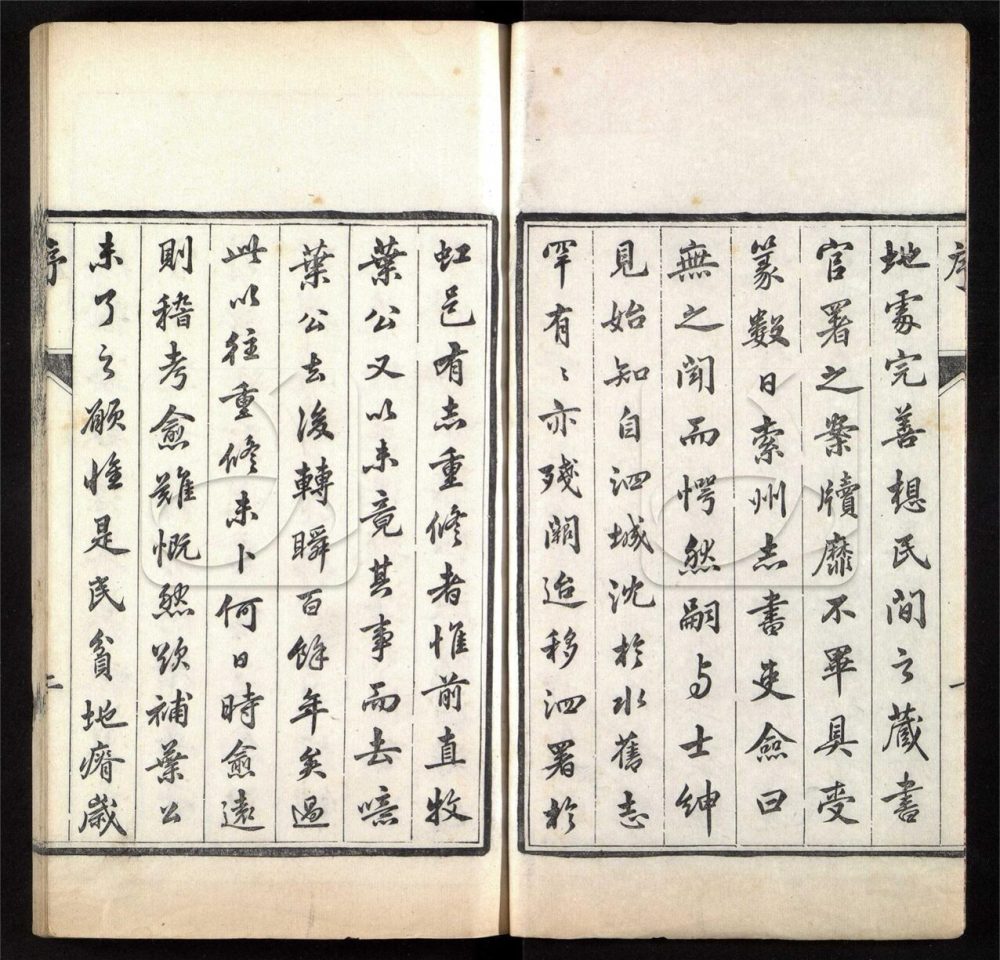 序
地處完善想民間之藏書
官署之案牘靡不畢具受
篆數日索州志書吏僉曰
無之聞而愕然嗣与士紳
見始知自泗城沈於水舊志
罕有〻亦殘闕迨移泗署於
一
虹邑有志重修者惟前直牧
葉公又以未竟其事而去噫
葉公去後轉瞬百餘年矣過
此以往重修未卜何日時愈遠
則稽考愈難慨然欲補葉公
未了之願惟是民貧地瘠歲
序
二